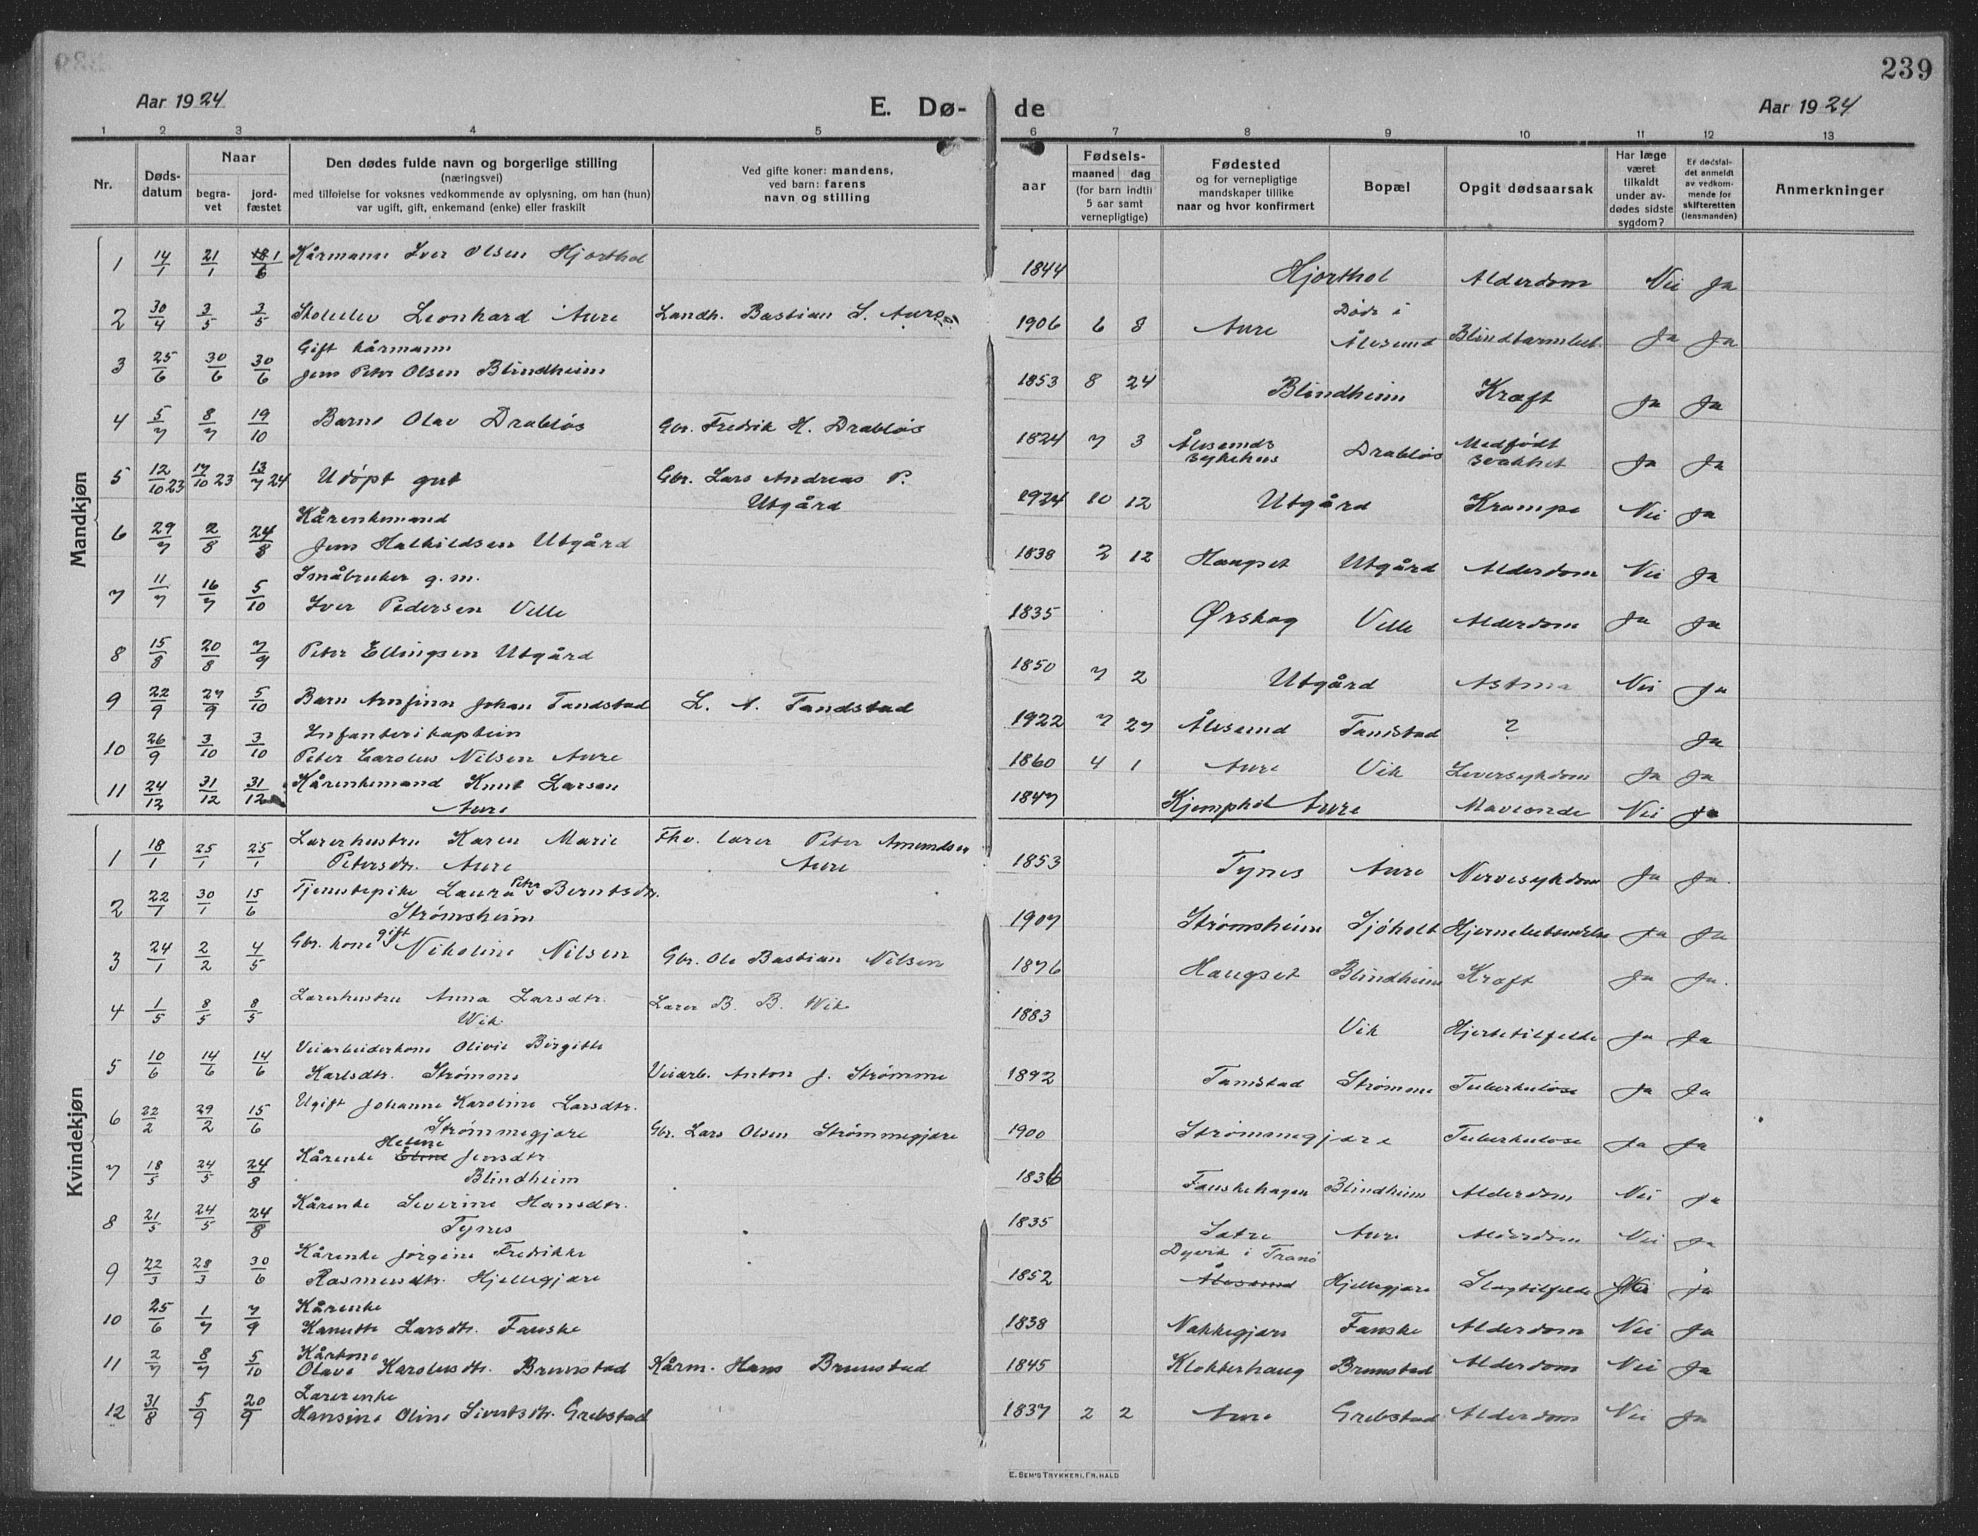 239
Aar 1924
E. Dø- de
Aar 1924
1 2 3 4 5 6 7 8 9 10 11 12 13
Nr.
Døds-datum
Naar
begra-vet
jord-fæstet
Den dødes fulde navn og borgerlige stilling
(næringsvei)
med tilføielse for voksnes vedkommende av oplysning, om han (hun)
var ugift, gift, enkemand (enke) eller fraskilt
Ved gifte koner: mandens,
ved barn: farens
navn og stilling
aar
Fødsels-
maaned dag
(for barn indtil
5 aar samt
vernepligtige)
Fødested
og for vernepligtige
mandskaper tillike
naar og hvor konfirmert
Bopæl
Opgit dødsaarsak
Har læge
været
tilkaldt
under av-
dødes sidste
sygdom?
Er dødsfal-
det anmeldt
av vedkom-
mende for
skifteretten
(lensmanden)
Anmerkninger
Mandkjøn
1 14/1 21/1 Kårmann Iver Olsen Hjorthol 1844 Hjorthol Alderdom Nei Ja
2 30/4 3/5 3/5 Skoleelev Leonhard Aure Landh. Bastian S. Aure 1906 6 8 Aure Døde i Ålesund Blindtarmbet. Ja Ja
3 25/6 30/6 30/6 Gift kårmann
Jens Peter Olsen Blindheim 1853 8 24 Blindheim Kræft Ja Ja
4 5/7 8/7 19/10 Barne Olav Drabløs Gbr. Fredrik H. Drabløs 1824 7 3 Ålesunds sykehus Drabløs Medfødt svakhet Ja Ja
5 12/10 23 17/10 23 13/7 24 Udøpt gut Gbr. Lars Andreas P.
Utgård 1924 10 12 Utgård Krampe Nei Ja
6 29/7 2/8 24/8 Kårenkemand
Jens Halkildsen Utgård 1838 2 12 Haugset Utgård Alderdom Nei Ja
7 11/7 16/7 5/10 Småbruker g.m.
Iver Pedersen Velle 1835 Ørskog Velle Alderdom Ja Ja
8 15/8 20/8 7/9 Peter Ellingsen Utgård 1850 7 2 Utgård Astma Nei Ja
9 22/9 27/9 5/10 Barn Arnfinn Johan Tandstad L. A. Tandstad 1922 7 27 Ålesund Tandstad ? Ja
10 26/9 3/10 3/10 Infanterikaptein
Peter Carolus Nilsen Aure 1860 4 1 Aure Vik Leversykdom Ja Ja
11 24/12 31/12 31/12 Kårenkemand Knut Larsen
Aure 1847 Kjemphol Aure Mavesonde Nei Ja
Kvindekjøn
1 18/1 25/1 25/1 Lærerhustru Karen Marie
Petersdtr. Aure Fhv. lærer Peter Amundsen
Aure 1853 Tynes Aure Nervesykdom Ja Ja.
2 22/1 30/1 15/6 Tjenestepike Laura Petra Berntsdtr.
Strømsheim 1907 Strømsheim Sjøholt Hjernebetændelse Ja Ja
3 24/1 2/2 4/5 Gbr. kone gift Nikoline Nilsen Gbr. Ole Bastian Nilsen 1876 Haugset Blindheim Kræft Ja Ja.
4 1/5 8/5 8/5 Lærerhustru Anna Larsdtr.
Wik Lærer B. B. Wik 1883 Vik Hjertetilfelde Ja Ja
5 10/6 14/6 14/6 Veiarbeiderkone Olivie Birgitte
Karlsdtr. Strømme Veiarb. Anton J. Strømme 1892 Tandstad Strømme Tuberkulose Ja Ja
6 22/2 29/2 15/6 Ugift Johanne Karoline Larsdtr.
Strømmegjære Gbr. Lars Olsen Strømmegjære 1900 Strømmegjære Tuberkulose Ja Ja
7 18/5 24/5 24/8 Kårenke Eline Helene Jensdtr
Blindheim 1836 Fauskehagen Blindheim Alderdom Nei Ja
8 21/5 24/5 24/8 Kårenke Severine Hansdtr.
Tynes 1835 Sætre Aure Alderdom Nei Ja
9 22/3 28/3 30/6 Kårenke Jørgine Fredrikke
Rasmusdtr. Hjellegjære 1852 Dyvik i Tranø Ålesund Hjellegjære Slagtilfelde Ja
10 25/6 1/7 7/9 Kårenke
Kanutte Larsdtr. Fauske 1838 Nakkegjære Fauske Alderdom Nei Ja
11 2/7 8/7 5/10 Kårkone
Olave Karolusdtr. Brunstad Kårm. Hans Brunstad 1845 Klokkerhaug Brunstad Alderdom Nei Ja
12 31/8 5/9 20/9 Lærerenke
Hansine Oline Sivertsdtr. Grebstad 1837 2 2 Aure Grebstad Alderdom Nei Ja
E. SEM'S TRYKKERI, FR.HALD